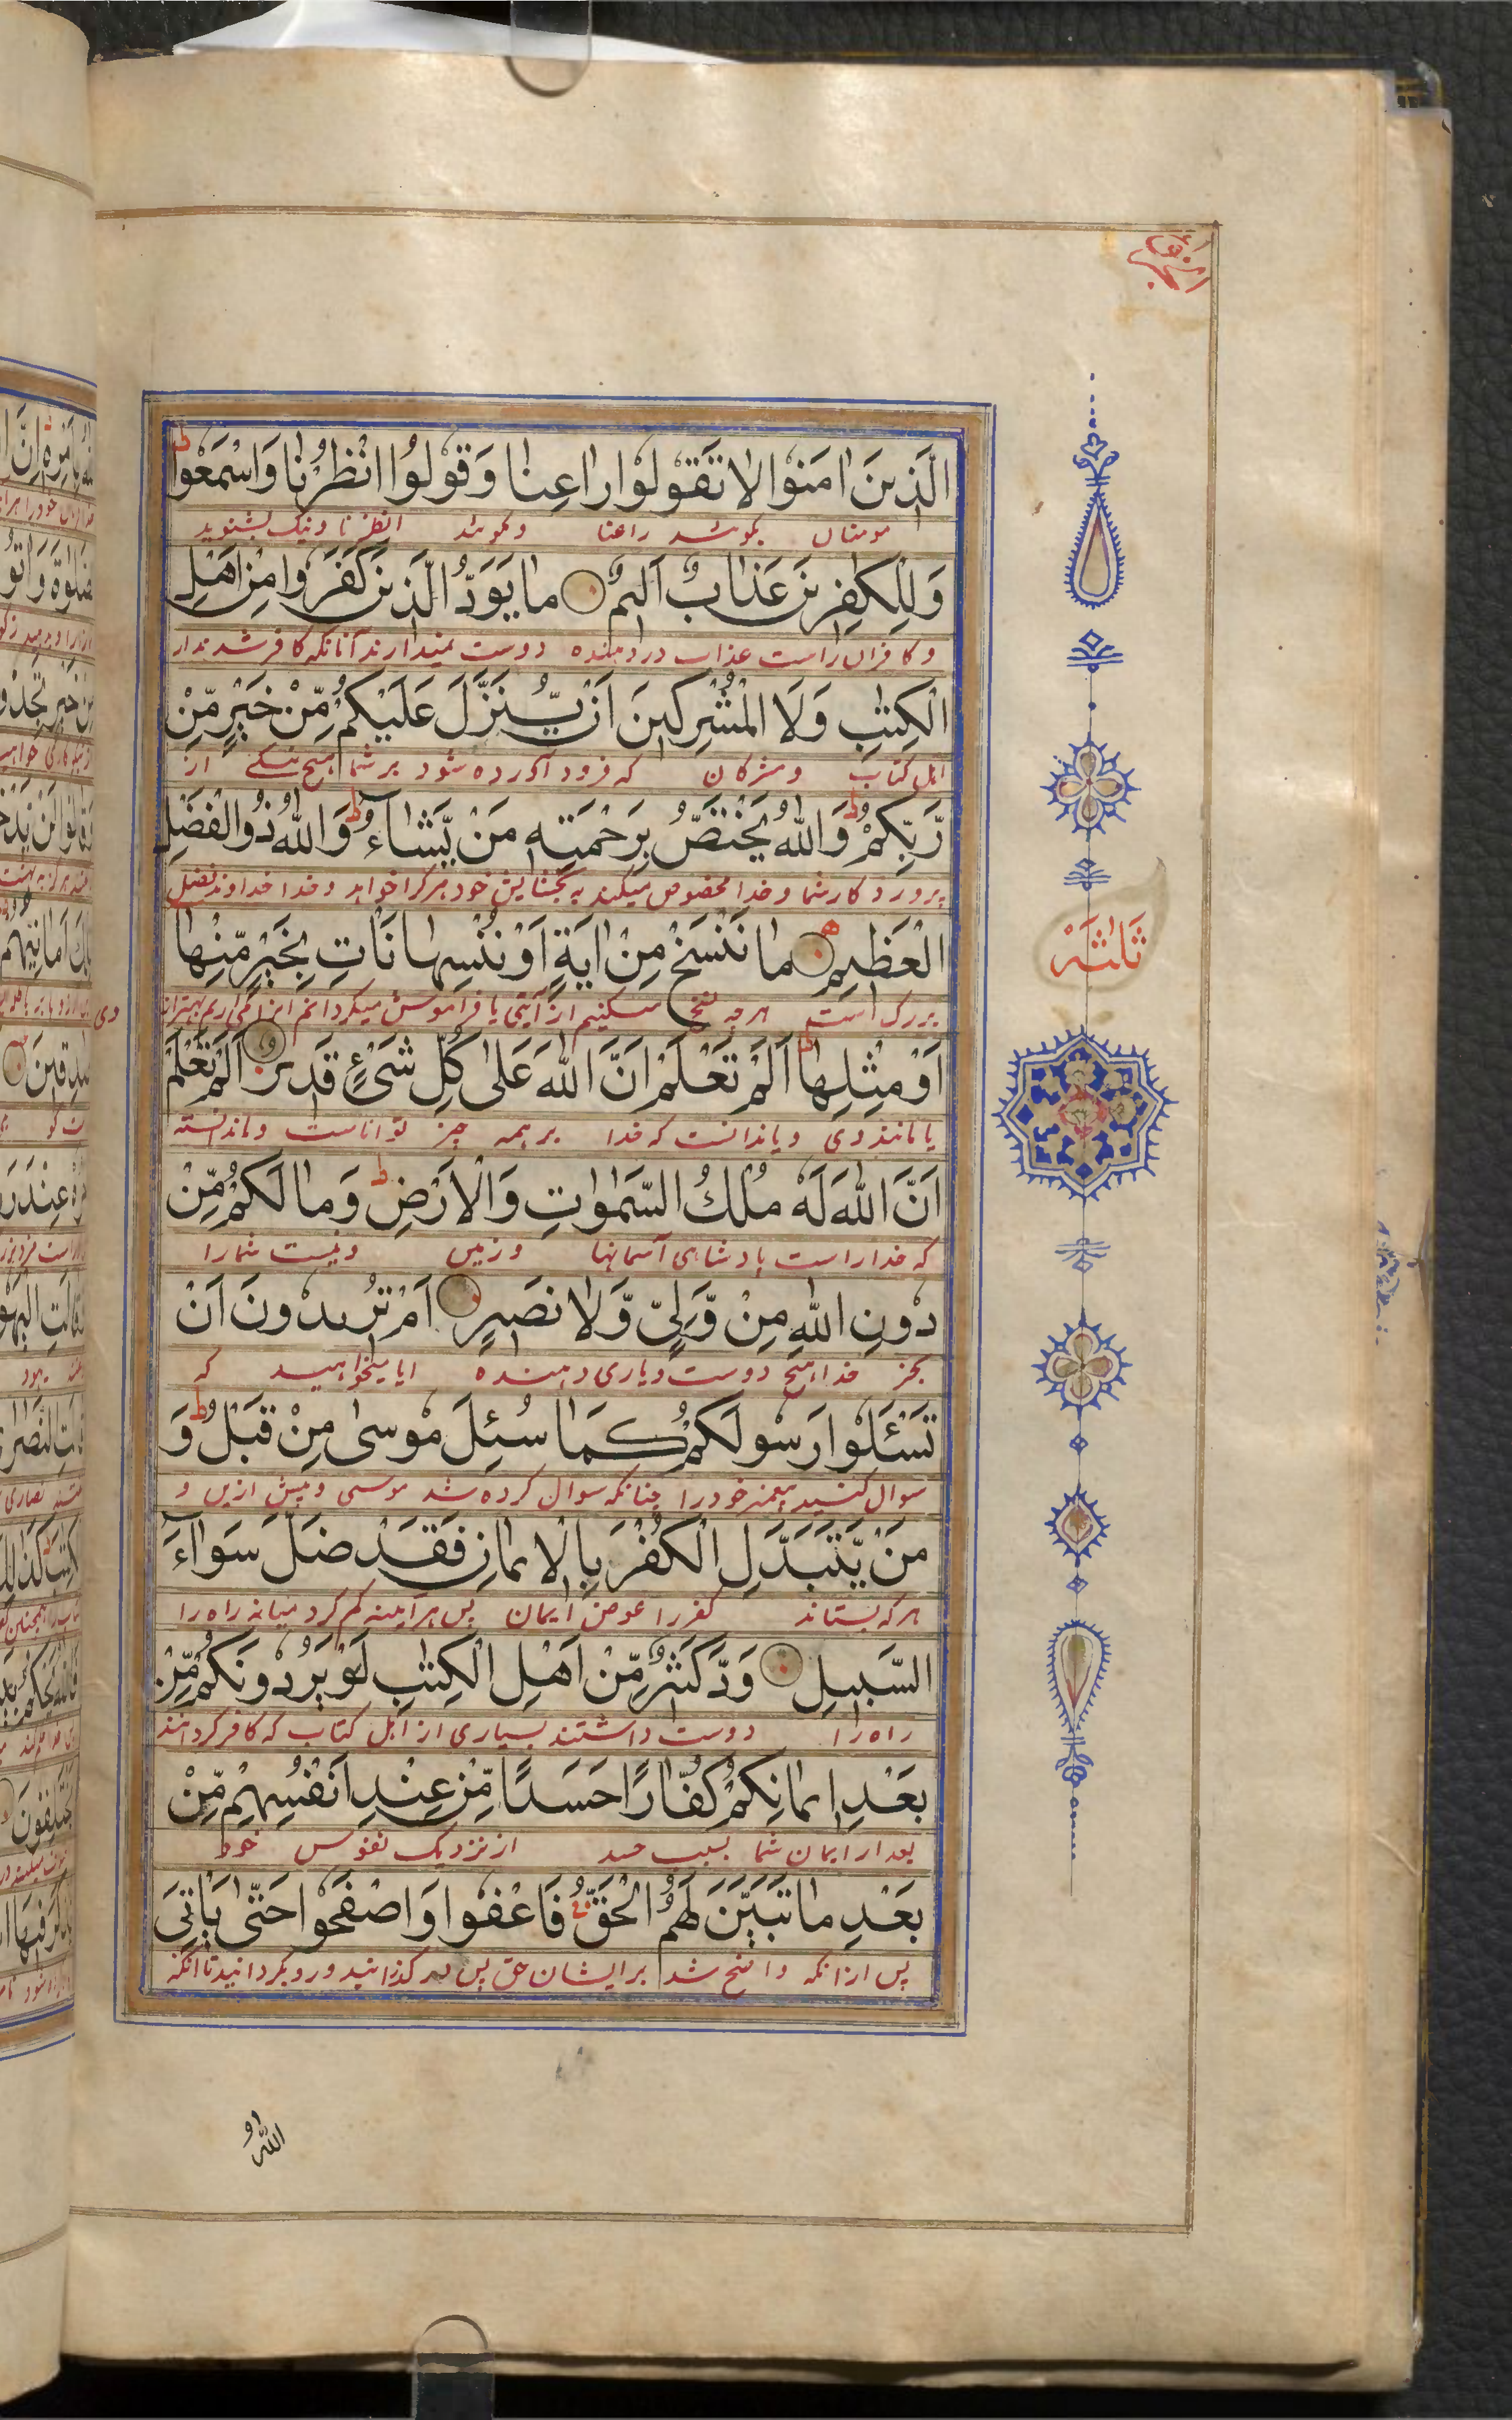 الَّذِينَ اٰمَنُوا لَا تَقُولُوا رَاعِنَا وَقُولُوا انْظُرْنَا وَاسْمَعُوا ط
مومنان راعنا انظرنا ونیک بشنوید
وَلِلْكٰفِرِينَ عَذَابٌ اَلِيمٌ مَا يَوَدُّ الَّذِينَ كَفَرُوا مِنْ اَهْلِ
و کافران راست عذاب درد دهنده دوست نمیدارند آنانکه کافر شدند از
الْكِتٰبِ وَلَا الْمُشْرِكِينَ اَنْ يُّنَزَّلَ عَلَيْكُمْ مِّنْ خَيْرٍ مِّنْ
اهل کتاب و مشرکان که فرود آورده شود بر شما هیچ نیکی از
رَّبِّكُمْ ط وَاللّٰهُ يَخْتَصُّ بِرَحْمَتِهٖ مَنْ يَّشَآءُ ط وَاللّٰهُ ذُو الْفَضْلِ
پروردگار شما و خدا مخصوص میکند به بخشایش خود هر کرا خواهد و خدا خداوند فضل
الْعَظِيمِ مَا نَنْسَخْ مِنْ اٰيَةٍ اَوْ نُنْسِهَا نَاْتِ بِخَيْرٍ مِّنْهَا
ثَلٰثَةَ
بزرگ است هر چه نسخ میکنیم از آیتی یا فراموش میگردانیم
اَوْ مِثْلِهَا ط اَلَمْ تَعْلَمْ اَنَّ اللّٰهَ عَلٰى كُلِّ شَيْءٍ قَدِيرٌ اَلَمْ تَعْلَمْ
یا مانند وی که خدا بر همه چیز تواناست
اَنَّ اللّٰهَ لَهٗ مُلْكُ السَّمٰوٰتِ وَالْاَرْضِ ط وَمَا لَكُمْ مِّنْ
که خدا راست پادشاهی آسمانها و زمین و نیست شما را
دُونِ اللّٰهِ مِنْ وَّلِيٍّ وَّلَا نَصِيرٍ اَمْ تُرِيدُونَ اَنْ
بجز خدا هیچ دوست و یاری دهنده ایا میخواهید که
تَسْئَلُوا رَسُولَكُمْ كَمَا سُئِلَ مُوسٰى مِنْ قَبْلُ ط وَ
سوال کنید پیغمبر خود را چنانکه سوال کرده شد موسی و پیش ازین و
مَنْ يَّتَبَدَّلِ الْكُفْرَ بِالْاِيمَانِ فَقَدْ ضَلَّ سَوَآءَ
هر که بستاند کفر را عوض ایمان پس هر آینه گم کرد میانه راه را
السَّبِيلِ وَدَّ كَثِيرٌ مِّنْ اَهْلِ الْكِتٰبِ لَوْ يَرُدُّونَكُمْ مِّنْ
راه را دوست داشتند بسیاری از اهل کتاب که کافر گردانند
بَعْدِ اِيمَانِكُمْ كُفَّارًا حَسَدًا مِّنْ عِنْدِ اَنْفُسِهِمْ مِّنْ
بعد از ایمان شما بسبب حسد از نزدیک نفوس خود
بَعْدِ مَا تَبَيَّنَ لَهُمُ الْحَقُّ فَاعْفُوا وَاصْفَحُوا حَتّٰى يَاْتِيَ
پس از انکه واضح شد بر ایشان حق پس در گذرانید و رو بگردانید تا آنکه
اللّٰهُ